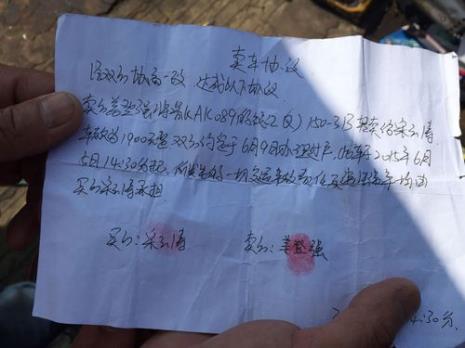 卖车协议
经双方协商一致 达成以下协议
卖方姜登强将鲁KAK089 150-3B 转卖给
车款为1900元整 双方约定于6月9日办理过户 此车于2015年6月
5日14:30分起, 所发生的一切交通事故责任及违法违章均由
买方 承担
买方: 卖方: 姜登强
:30分